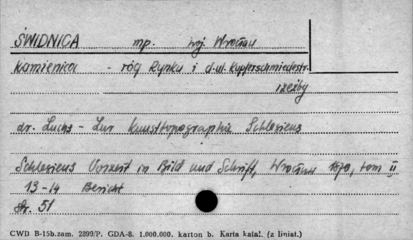 ŚWIDNICA mp. woj. Wrocław
Kamienica - róg Rynku i d. ul. Kupferschmiedestr.
rzeźby
dr. Luchs - Zur Kunsttopographie Schlesiens
Schlesiens Vorzeit in Bild und Schrift, Wrocław 1870, tom II
13-14 Bericht
Str. 51
CWD B-15b.zam. 2899/P. GDA-8. 1.000.000. karton b. Karta katal. (z liniat.)